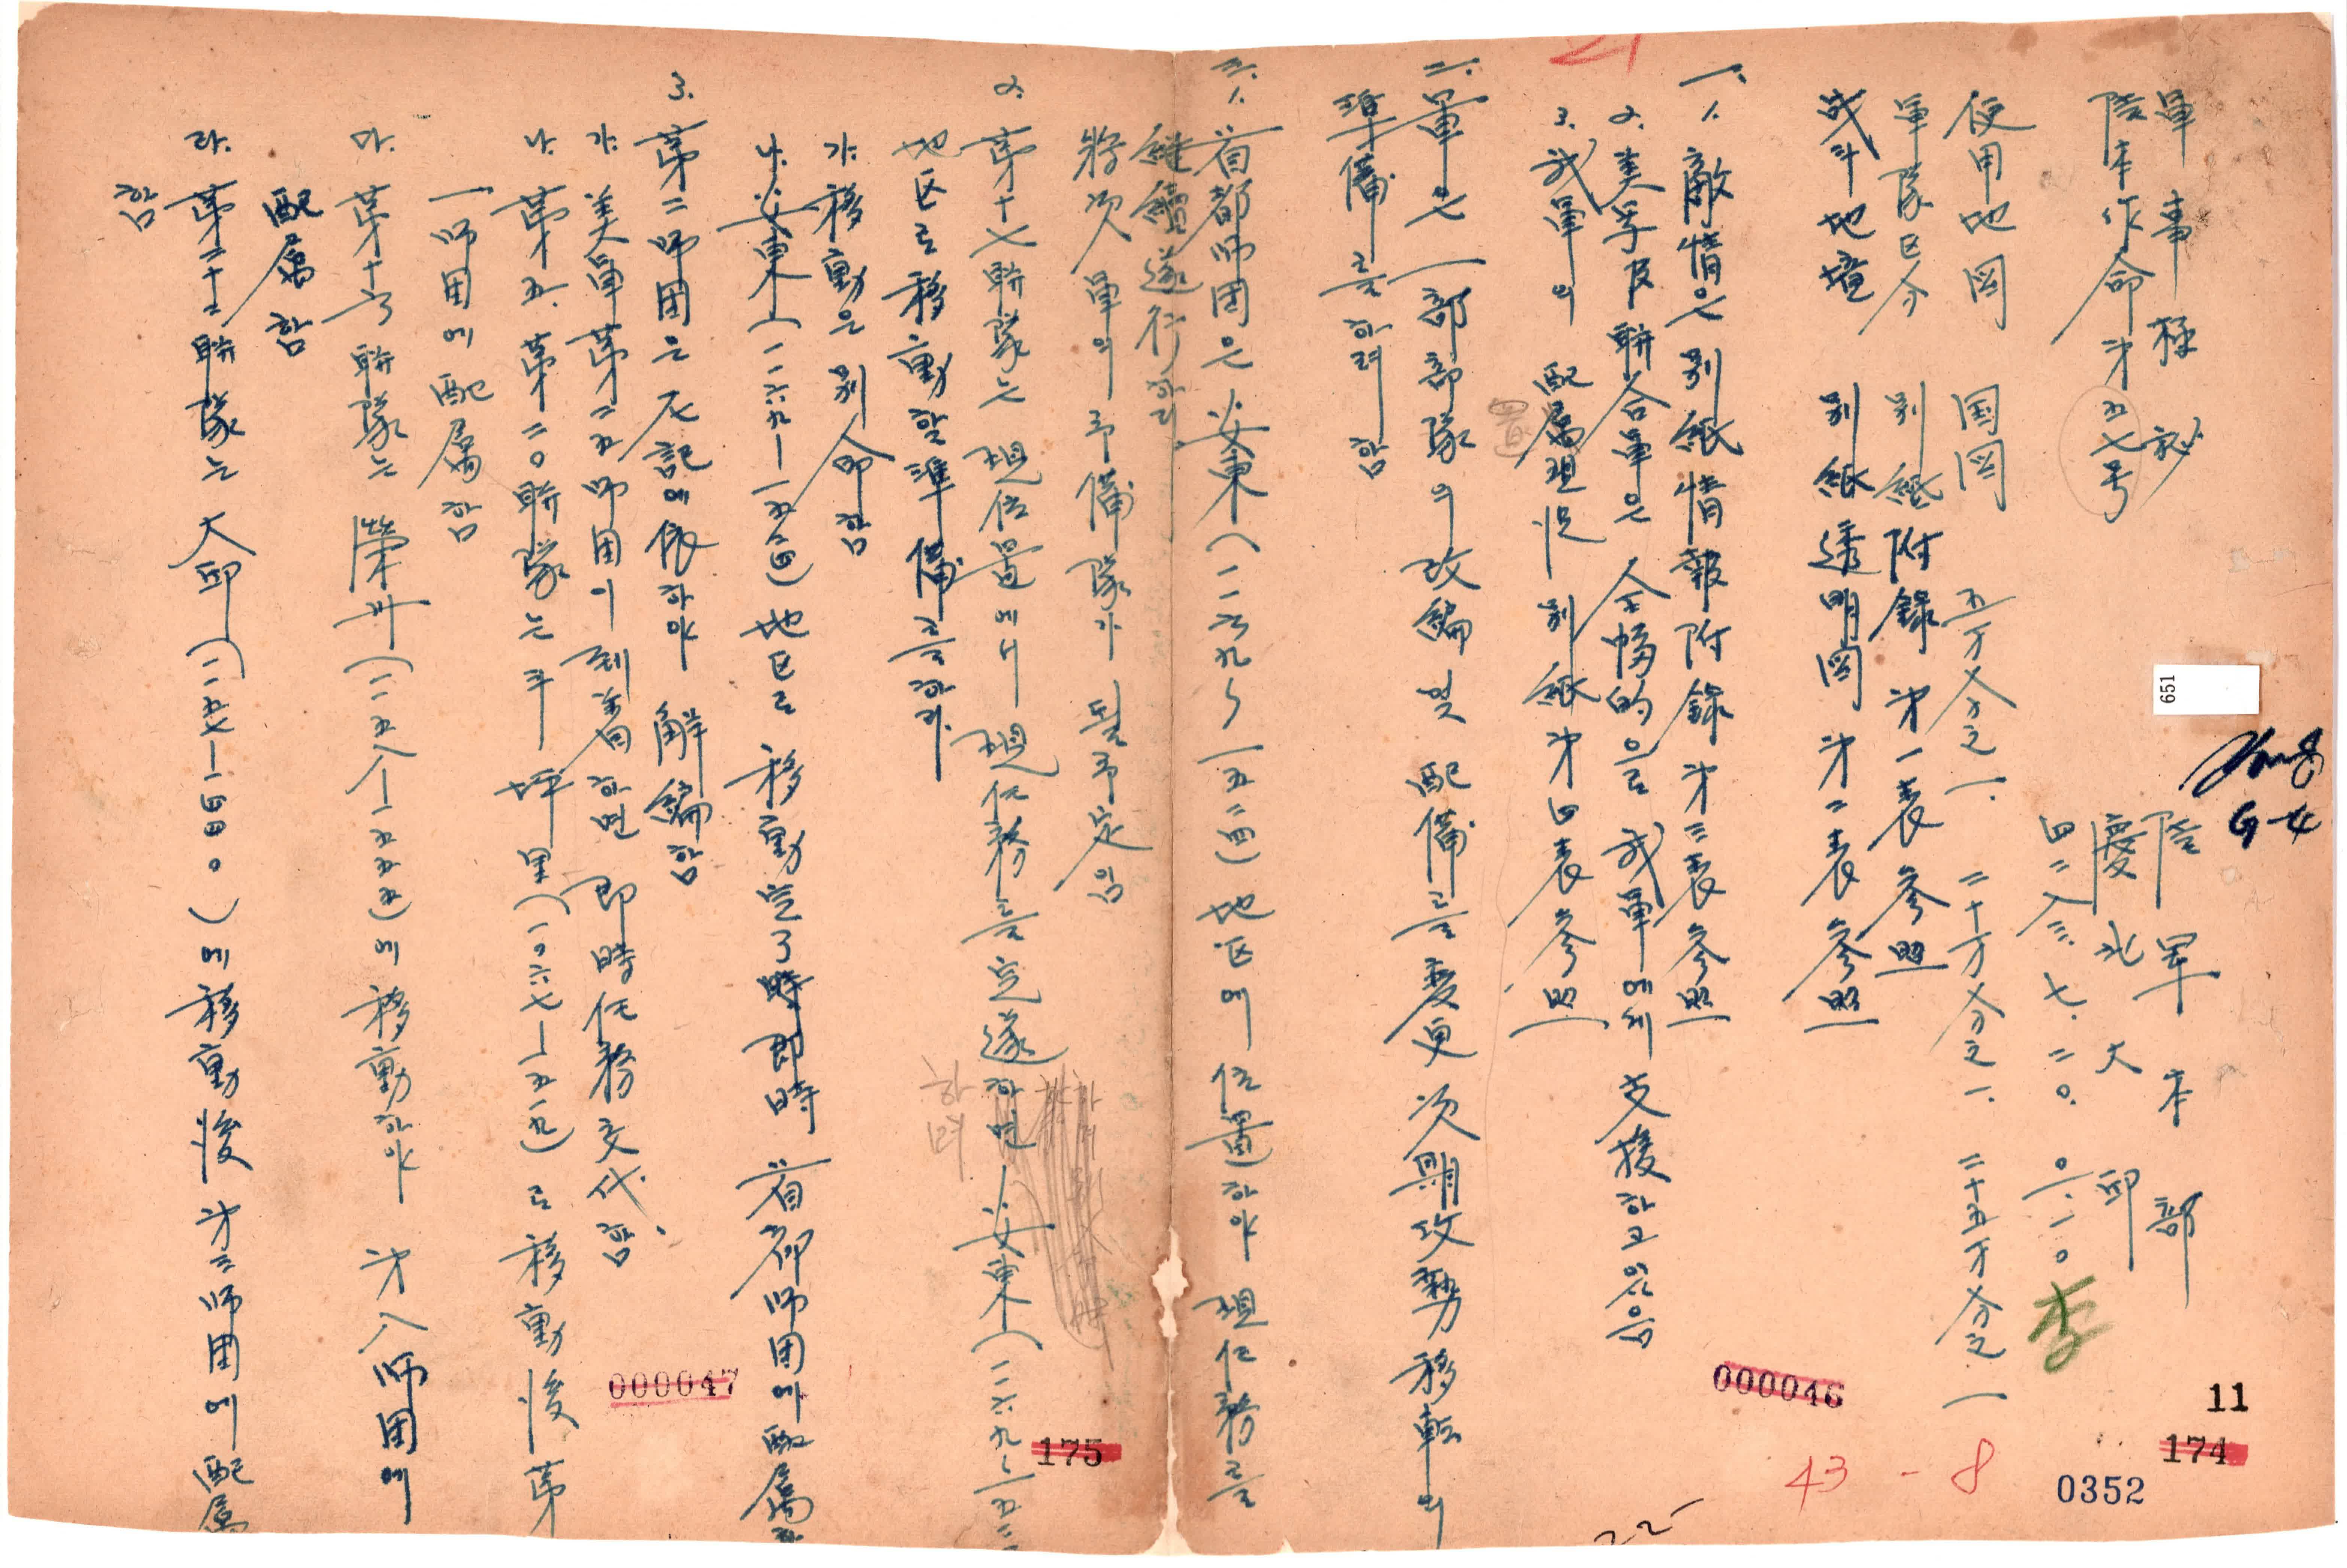 軍事極秘
陸軍本部
陸本作命才五七号
慶北大邱
四二八三.七.二0.0一.一0
李
使用地図 国図 五万分之一. 二十万分之一. 二十五万分之一
軍隊区分 別紙附錄才一表参照
战斗地境 別紙透明図才二表参照
一. 1. 敵情은 別紙情報附錄才三表参照
2. 美军及联合軍은 全幅的으로 我軍에게 支援하고있음
3. 我軍의 配属現況 別紙才四表参照
置
二. 軍은 一部部隊의 改編 및 配備를 変更 次期攻勢移転의
準備를 하려함
三. 1. 首都師団은 安東(一一六九〜一五二四)地区에 位置하야 現任務를
継續遂行하라.
將次軍의 予備隊가 될 予定임
2. 第十七聯隊는 現位置에서 現任務를 完遂하면 安東(一一六九〜一五二
하며
地区로 移動할 準備를 하라.
가. 移動은 別命함
나. 安東(一一六九—一五二四)地区로 移動完了時 即時 首都師団에 配属하
3. 第二師団은 左記에 依하야 解編함
가. 美軍第二五師団이 到着하면 即時任務交代함.
나. 第五.第二0聯隊는 斗坪里(一0六七—一五一九)로 移動後 第
一師団에 配属함
다. 第十六聯隊는 榮州(一一五八—一五五五)에 移動하야 才八師団에
配属함
라. 第二十二聯隊는 大邱(一一五七—一四四0)에 移動後 才三師団에 配属
함
651
G-4
11
174
0352
43-8
000046
175
000047
22